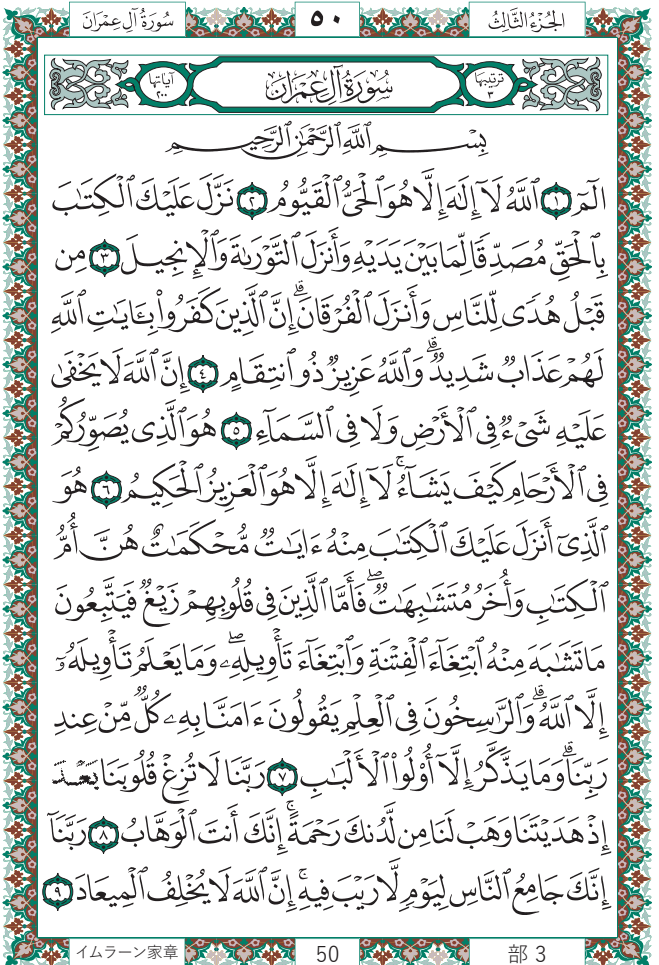 الجُزْءُ الثَّالِثُ ٥٠ سُورَةُ آلِ عِمْرَانَ
ترتيبها ٣ سُورَةُ آلِ عِمْرَانَ آياتها ٢٠٠
بِسْمِ ٱللَّهِ ٱلرَّحْمَٰنِ ٱلرَّحِيمِ
الٓمٓ ١ ٱللَّهُ لَآ إِلَٰهَ إِلَّا هُوَ ٱلْحَىُّ ٱلْقَيُّومُ ٢ نَزَّلَ عَلَيْكَ ٱلْكِتَٰبَ
بِٱلْحَقِّ مُصَدِّقًا لِّمَا بَيْنَ يَدَيْهِ وَأَنزَلَ ٱلتَّوْرَىٰةَ وَٱلْإِنجِيلَ ٣ مِن
قَبْلُ هُدًى لِّلنَّاسِ وَأَنزَلَ ٱلْفُرْقَانَ ۗ إِنَّ ٱلَّذِينَ كَفَرُوا۟ بِـَٔايَٰتِ ٱللَّهِ
لَهُمْ عَذَابٌ شَدِيدٌ ۗ وَٱللَّهُ عَزِيزٌ ذُو ٱنتِقَامٍ ٤ إِنَّ ٱللَّهَ لَا يَخْفَىٰ
عَلَيْهِ شَىْءٌ فِى ٱلْأَرْضِ وَلَا فِى ٱلسَّمَآءِ ٥ هُوَ ٱلَّذِى يُصَوِّرُكُمْ
فِى ٱلْأَرْحَامِ كَيْفَ يَشَآءُ ۚ لَآ إِلَٰهَ إِلَّا هُوَ ٱلْعَزِيزُ ٱلْحَكِيمُ ٦ هُوَ
ٱلَّذِىٓ أَنزَلَ عَلَيْكَ ٱلْكِتَٰبَ مِنْهُ ءَايَٰتٌ مُّحْكَمَٰتٌ هُنَّ أُمُّ
ٱلْكِتَٰبِ وَأُخَرُ مُتَشَٰبِهَٰتٌ ۖ فَأَمَّا ٱلَّذِينَ فِى قُلُوبِهِمْ زَيْغٌ فَيَتَّبِعُونَ
مَا تَشَٰبَهَ مِنْهُ ٱبْتِغَآءَ ٱلْفِتْنَةِ وَٱبْتِغَآءَ تَأْوِيلِهِۦ ۗ وَمَا يَعْلَمُ تَأْوِيلَهُۥٓ
إِلَّا ٱللَّهُ ۗ وَٱلرَّٰسِخُونَ فِى ٱلْعِلْمِ يَقُولُونَ ءَامَنَّا بِهِۦ كُلٌّ مِّنْ عِندِ
رَبِّنَا ۗ وَمَا يَذَّكَّرُ إِلَّآ أُو۟لُوا۟ ٱلْأَلْبَٰبِ ٧ رَبَّنَا لَا تُزِغْ قُلُوبَنَا بَعْدَ
إِذْ هَدَيْتَنَا وَهَبْ لَنَا مِن لَّدُنكَ رَحْمَةً ۚ إِنَّكَ أَنتَ ٱلْوَهَّابُ ٨ رَبَّنَآ
إِنَّكَ جَامِعُ ٱلنَّاسِ لِيَوْمٍ لَّا رَيْبَ فِيهِ ۚ إِنَّ ٱللَّهَ لَا يُخْلِفُ ٱلْمِيعَادَ ٩
イムラーン家章 50 部 3